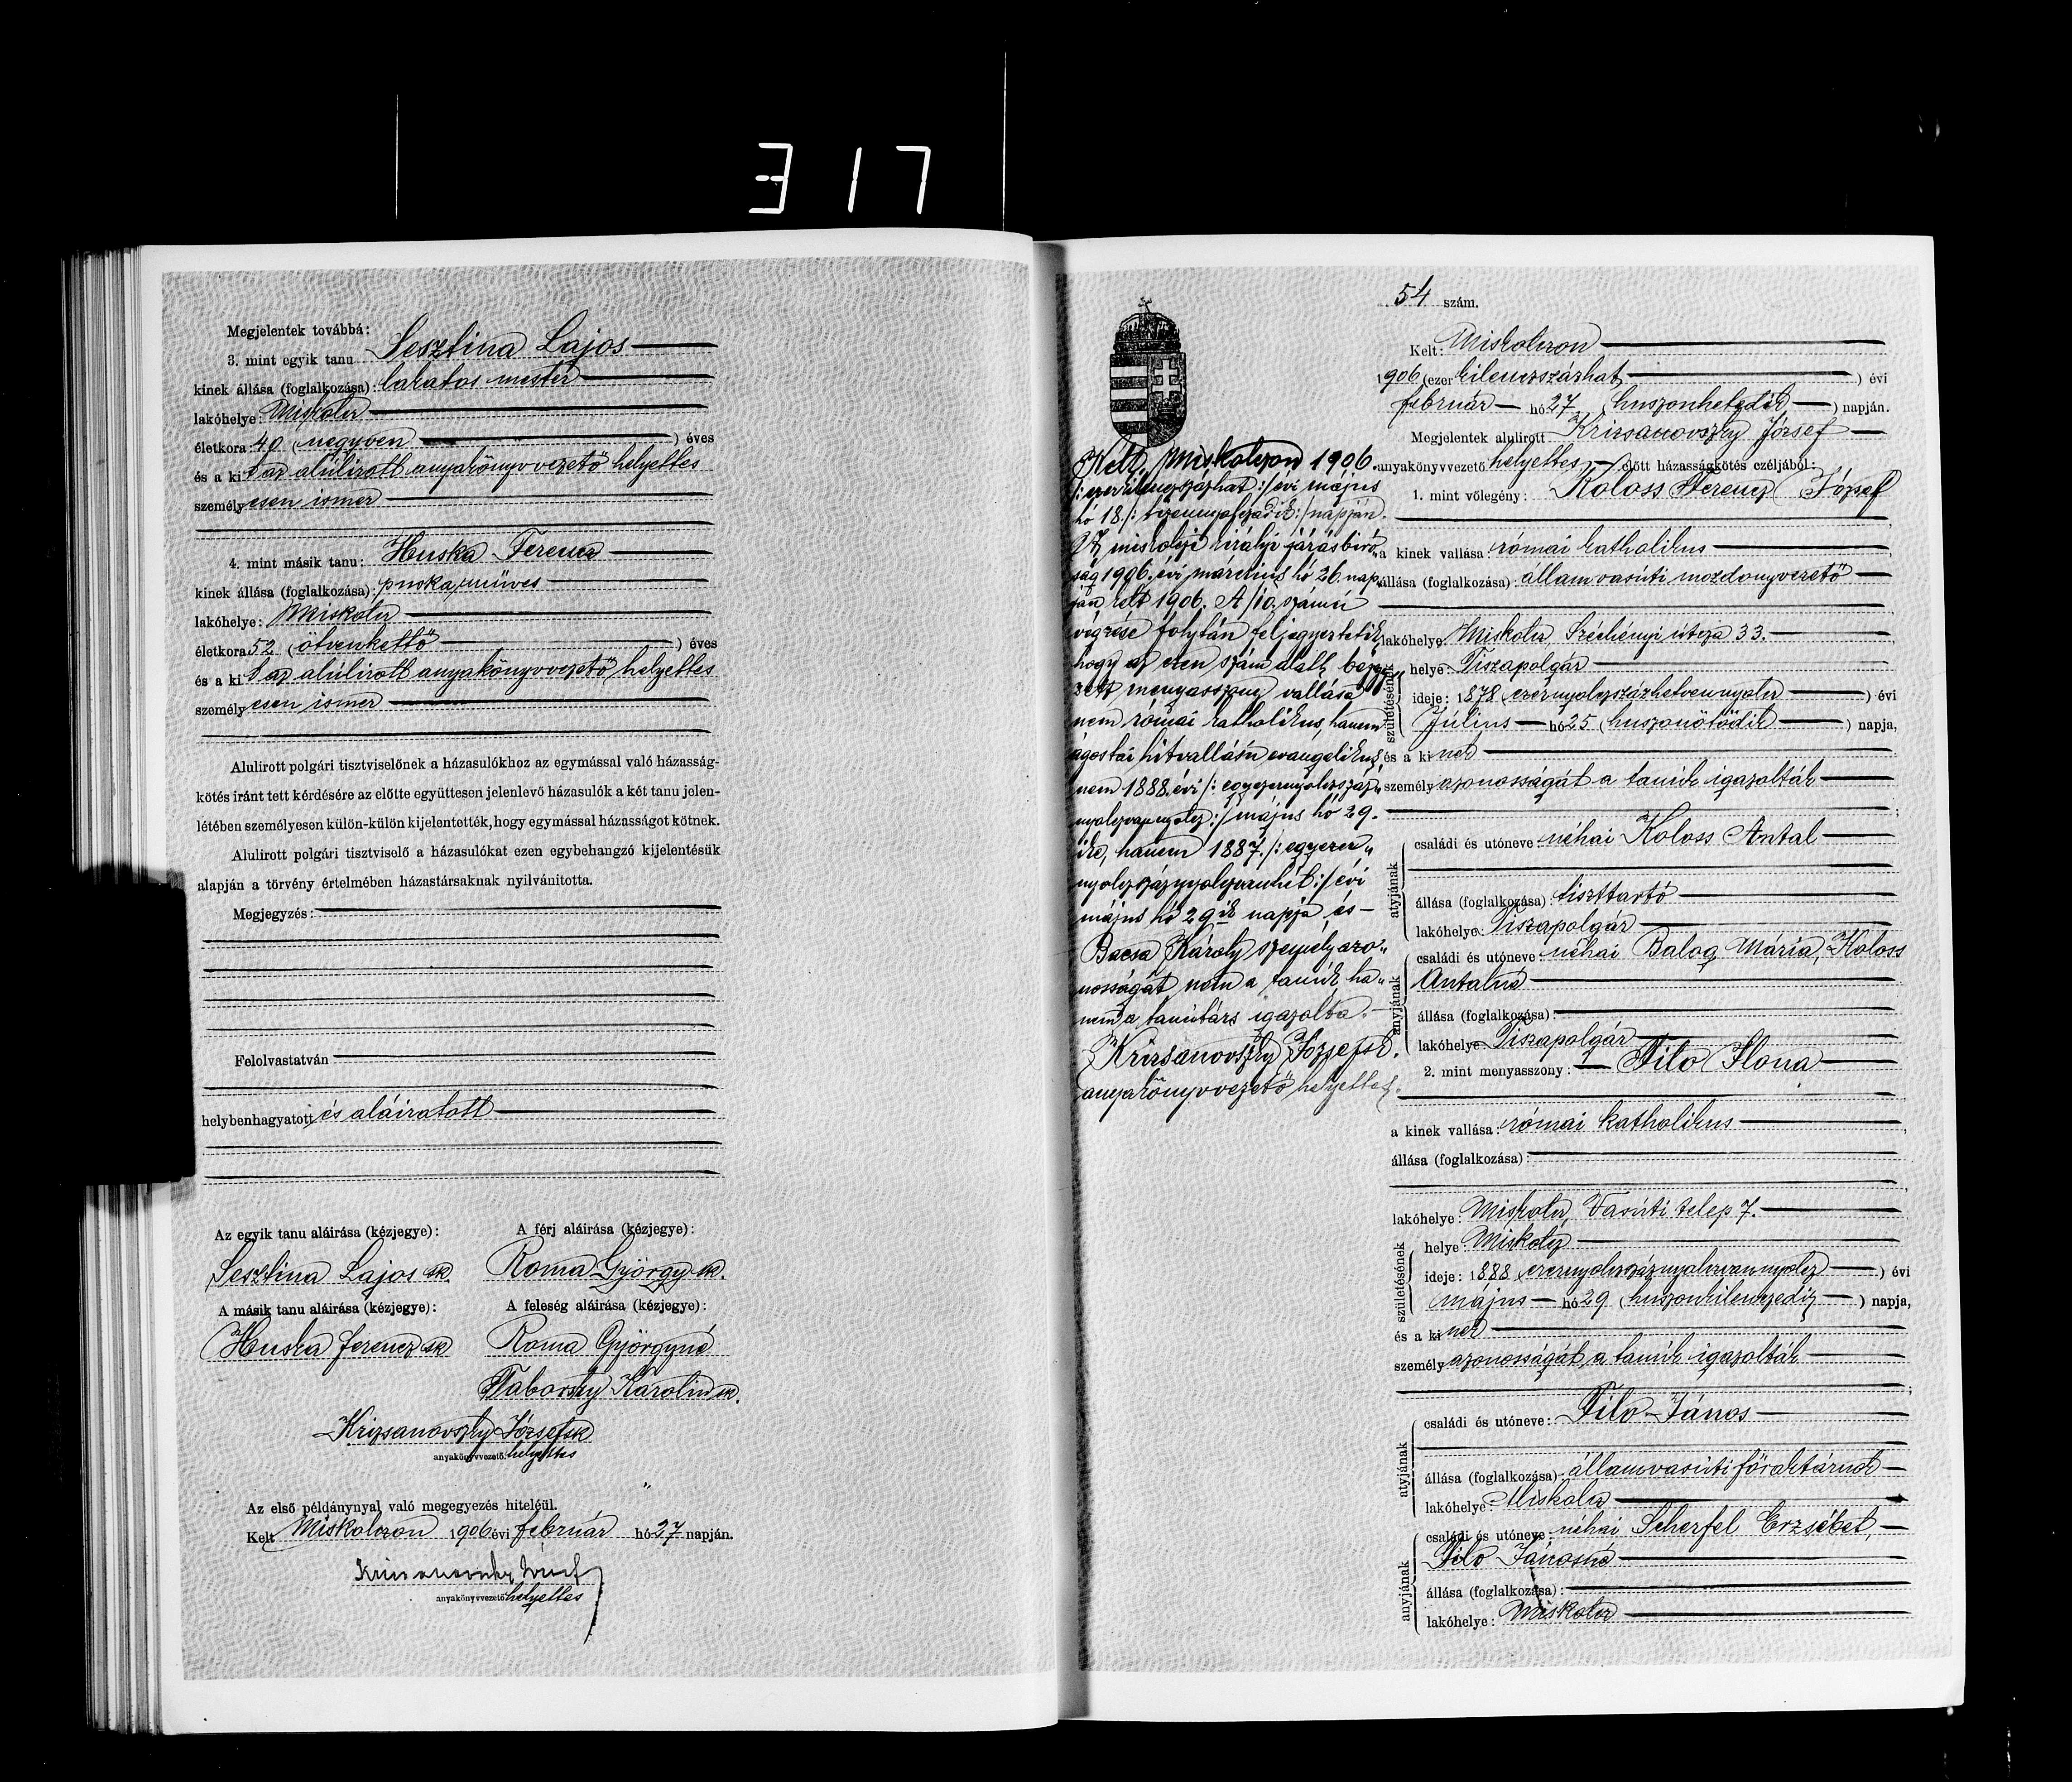 317
Megjelentek továbbá:
3. mint egyik tanu Sesztina Lajos
kinek állása (foglalkozása): lakatos mester
lakóhelye: Miskolcz
életkora 40 (negyven) éves
és a ki t az alúlirott anyakönyvvezető helyettes
személyesen ismer
4. mint másik tanu: Huska Ferencz
kinek állása (foglalkozása): puskaműves
lakóhelye: Miskolcz
életkora 52 (ötvenkettő) éves
és a ki t az alúlirott anyakönyvvezető helyettes
személyesen ismer
Alulirott polgári tisztviselőnek a házasulókhoz az egymással való házasság-
kötés iránt tett kérdésére az előtte együttesen jelenlevő házasulók a két tanu jelen-
létében személyesen külön-külön kijelentették, hogy egymással házasságot kötnek.
Alulirott polgári tisztviselő a házasulókat ezen egybehangzó kijelentésük
alapján a törvény értelmében házastársaknak nyilvánitotta.
Megjegyzés:
Felolvastatván
helybenhagyatott és aláiratott
Az egyik tanu aláirása (kézjegye): A férj aláirása (kézjegye):
Sesztina Lajos sk. Roma György sk.
A másik tanu aláirása (kézjegye): A feleség aláirása (kézjegye):
Huska Ferencz sk Roma Györgyné
Táborszky Karolin sk.
Krizsanovszky József sk
anyakönyvvezető helyettes
Az első példánynyal való megegyezés hiteléül.
Kelt Miskolczon 1906 évi február hó 27 napján.
Krizsanovszky József
anyakönyvvezető helyettes
54 szám.
Kelt: Miskolczon
1906 (ezer kilenczszázhat) évi
február hó 27 (huszonhetedik) napján.
Megjelentek alulirott Krizsanovszky József
anyakönyvvezető helyettes előtt házasságkötés czéljából:
1. mint vőlegény: Koloss Ferencz József
a kinek vallása: római katholikus
állása (foglalkozása): állam vasúti mozdonyvezető
lakóhelye: Miskolcz Széchényi útcza 33.
születésének
helye: Tiszapolgár
ideje: 1878 (ezernyolczszázhetvennyolcz) évi
Július hó 25 (huszonötödik) napja,
és a ki nek
személyazonosságát a tanúk igazolták
atyjának
családi és utóneve: néhai Koloss Antal
állása (foglalkozása): tiszttartó
lakóhelye: Tiszapolgár
anyjának
családi és utóneve: néhai Balog Mária, Koloss
Antalné
állása (foglalkozása):
lakóhelye: Tiszapolgár
2. mint menyasszony: Filo Ilona
a kinek vallása: római katholikus
állása (foglalkozása):
lakóhelye: Miskolcz, Vasúti telep 7.
születésének
helye: Miskolcz
ideje: 1888 (ezernyolczszáznyolczvannyolcz) évi
május hó 29 (huszonkilenczedik) napja,
és a ki nek
személyazonosságát a tanúk igazolták
atyjának
családi és utóneve: Filo János
állása (foglalkozása): államvasúti főraktárnok
lakóhelye: Miskolcz
anyjának
családi és utóneve: néhai Scherfel Erzsébet,
Filo Jánosné
állása (foglalkozása):
lakóhelye: Miskolcz
Kelt, Miskolczon 1906.
/: ezerkilenczszázhat :/ évi május
hó 18. /: tizennyolczadik :/ napján.
Az miskolczi királyi járásbiró-
ság 1906. évi márczius hó 26. nap-
ján kelt 1906. A/10 számú
végzése folytán feljegyeztetik,
hogy az ezen szám alatt bejegy-
zett menyasszony vallása
nem római katholikus, hanem
ágostai hitvallású evangelikus
nem 1888. évi /: egyezernyolczszáz-
nyolczvannyolcz :/ május hó 29.
ike, hanem 1887. /: egyezer-
nyolczszáznyolczvanhét :/ évi
május hó 29ik napja és
Bacsa Károly személyazo-
nosságát nem a tanúk, ha-
nem a tanútárs igazolta.
Krizsanovszky József sk.
anyakönyvvezető helyettes.